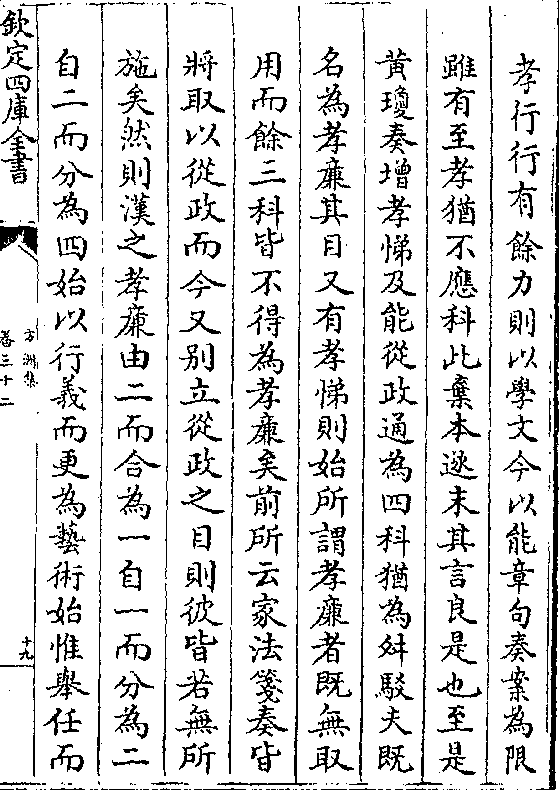 孝行行有餘力則以學文今以能章句奏案為限
雖有至孝猶不應科此棄本逐末其言良是也至是
黃瓊奏增孝悌及能從政通為四科猶為舛駁夫既
名為孝廉其目又有孝悌則始所謂孝廉者既無取
用而餘三科皆不得為孝廉矣前所云家法箋奏皆
將取以從政而今又別立從政之目則彼皆若無所
施矣然則漢之孝廉由二而合為一自一而分為二
自二而分為四始以行義而更為藝術始惟舉任而
欽定四庫全書
方洲集
卷三十二
十九